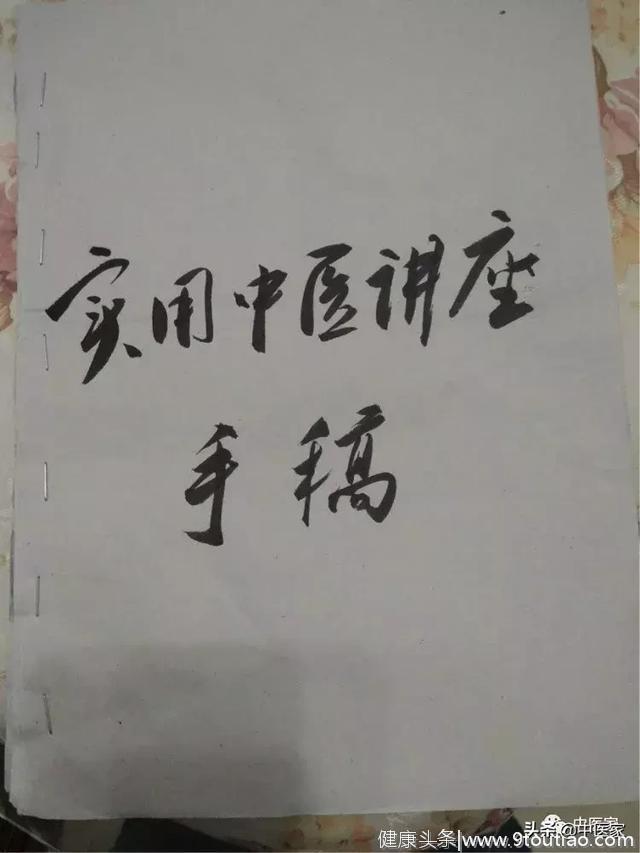 实用中医讲座
手稿
头条@中医家
健康头条www.9toutiao.com